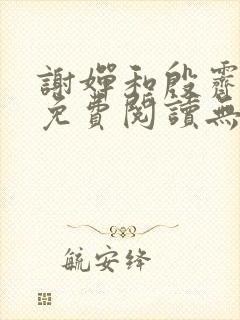 謝嬋和殷霽
免費閱讀無
航安绛